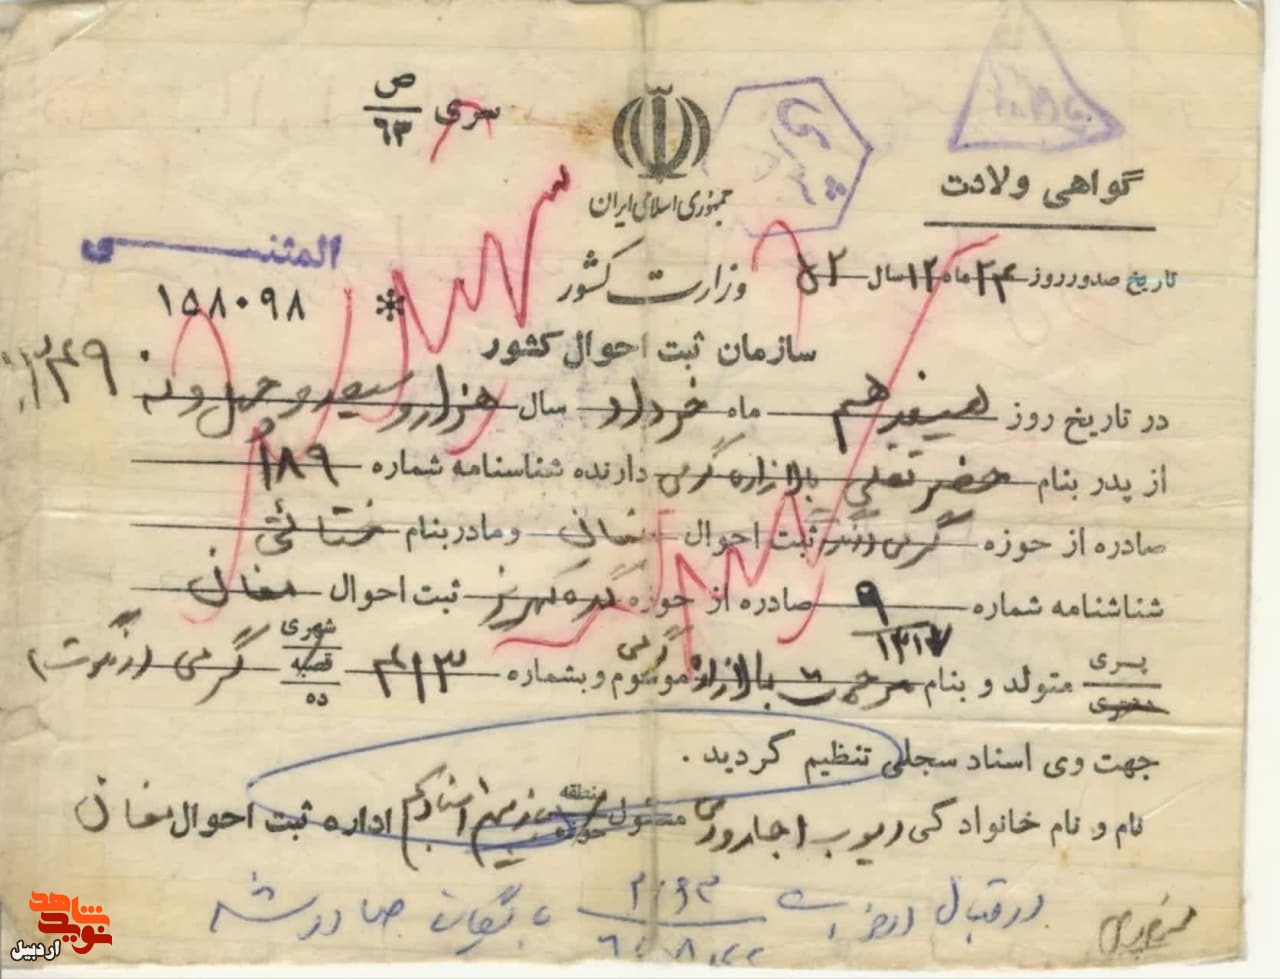 ص
سری
۶۳
جمهوری اسلامی ایران
گواهی ولادت
وزارت کشور
تاریخ صدور روز ۲۴ ماه ۱۲ سال
المثنی
۱۵۸۰۹۸ *
سازمان ثبت احوال کشور
در تاریخ روز هیفدهم ماه خرداد سال هزار و سیصد و چهل و نه ۱۳۴۹
از پدر بنام حضرتقلی بالازاده گرمی دارنده شناسنامه شماره ۱۸۹
صادره از حوزه گرمی ثبت احوال مغان و مادر بنام ختائی
شناشنامه شماره ۹ صادره از حوزه ثبت احوال مغان
۱۳۱۷
پسری متولد و بنام مرحمت بالازاده گرمی موسوم و بشماره ۴۱۳ شهری قصبه ده گرمی (انگوت)
دختری
جهت وی اسناد سجلی تنظیم گردید .
نام و نام خانوادگی ایوب اجارودی مسئول منطقه حوزه اداره ثبت احوال مغان
در قبال بایگان صادر شد
نوید شاهد
اردبیل